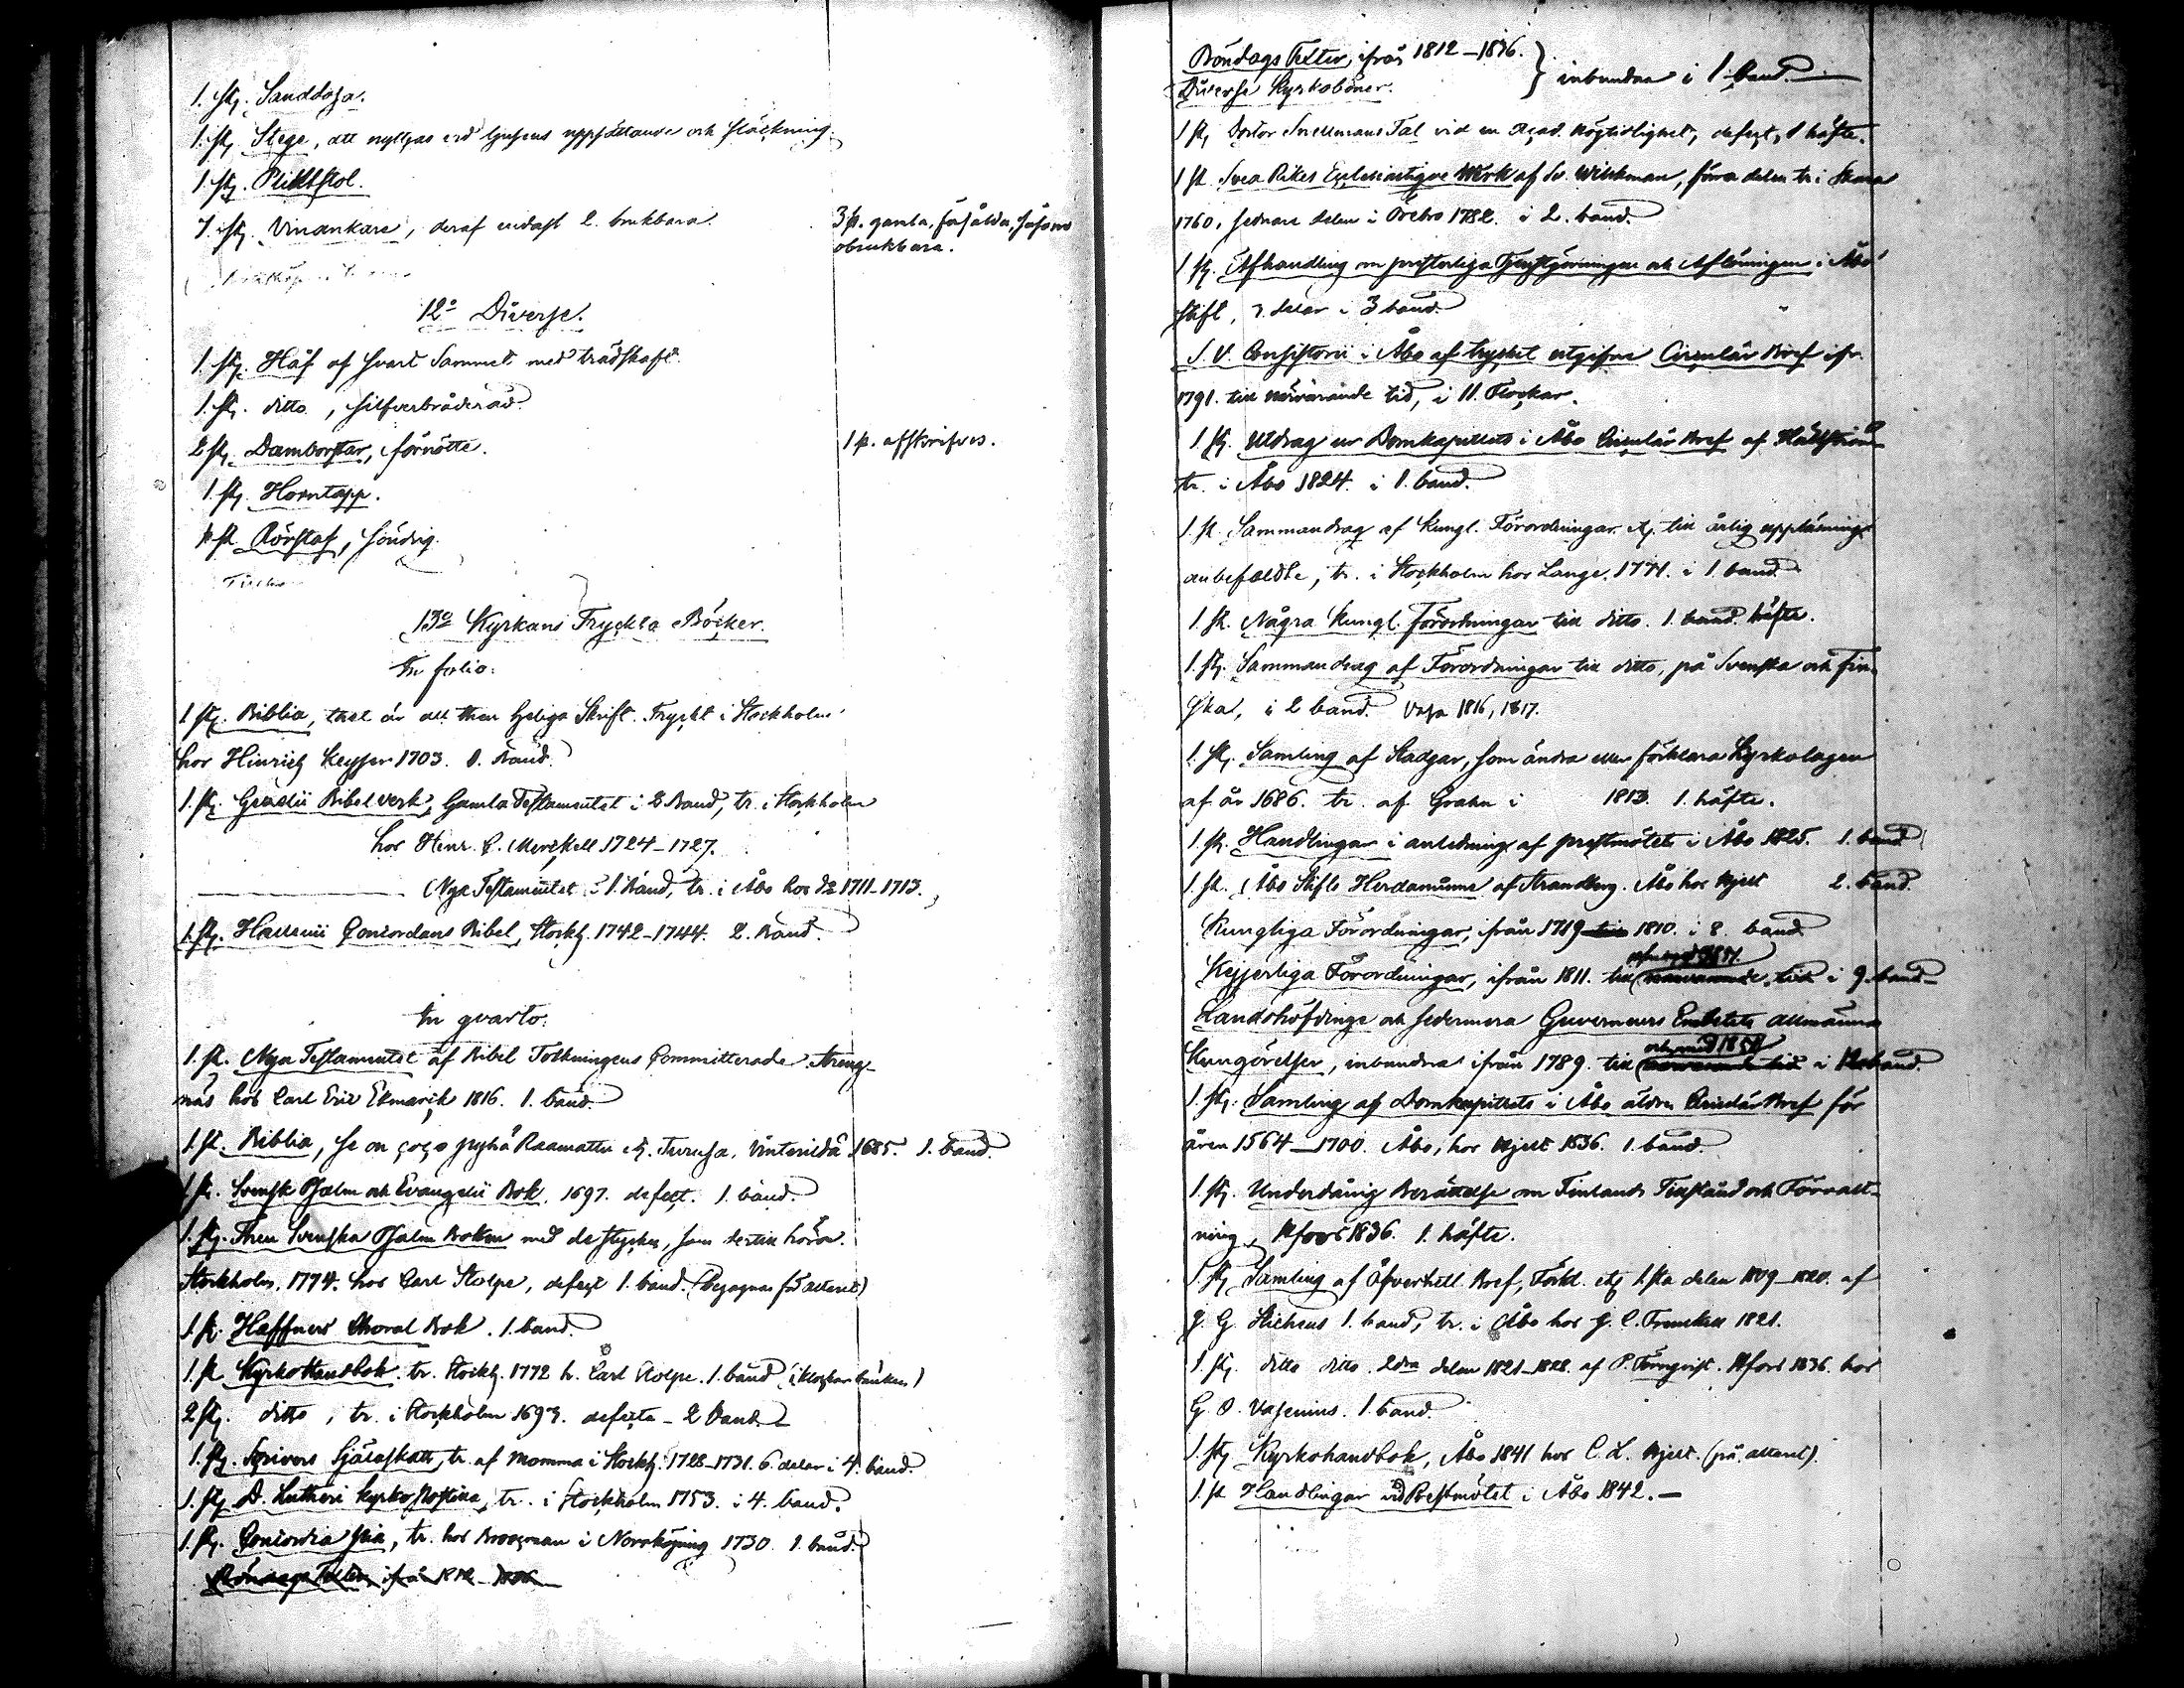 1. st. Sanddosa.
1. st. Stege, att nyttjas vid ljusens uppsättande och släckning.
1. st. Pliktstol.
7. st. Vinankare, deraf endast 2. brukbara.
3 st. gamla, försålda, såsom
obrukbara.
12º Diverse.
1. st. Håf af svart Sammet med trädskaft.
1. st. ditto, silfverbråderad.
2 st. Damborstar, förnötte.
1 st. afskrifves.
1. st. Horntapp.
1 st. Rörstaf, söndrig.
13º Kyrkans Tryckta Böcker.
In folio:
1 st. Biblia, thet är all then Heliga Skrift. Tryckt i Stockholm
hos Hinrich Keyser 1703. 1. Band.
1. st. Gezelii Bibelverk, Gamla Testamentet i 2 Band, tr. i Stockholm
hos Henr. C. Merckell 1724-1727.
Nya Testamentet i 1. Band, tr. i Åbo hos do 1711-1713.
1. st. Hallenii Concordans Bibel, Stockh. 1742-1744. 2. Band.
In qvarto.
1. st. Nya Testamentet af Bibel Tolkningens Committerade. Streng-
näs hos Carl Eric Ekmarck 1816. 1. band.
1. st. Biblia, se on coco pyhä Raamattu etc. Turussa, Winterildä 1685. 1. band.
1 st. Svensk Psalm och Evangelii Bok. 1697. defect. 1. band.
1. st. Then Svenska Psalm Boken med de stycken, som dertill höra.
Stockholm. 1774. hos Carl Stolpe, defect 1. band. (begagnas för altaret)
1. st. Hæffners Choral Bok. 1. band.
1. st. Kyrko Handbok. tr. Stockh. 1772 h. Carl Stolpe. 1. band (i klockarbänken)
2 st. ditto, tr. i Stockholm 1693. defecta - 2 Band.
1. st. Scrivers Själaskatt, tr. af Momma i Stockh. 1728-1731. 6. delar i 4. band.
1. st. D. Lutheri Kyrko Postilla, tr. i Stockholm 1753. i 4. band.
1. st. Concordia pia, tr. hos Broocman i Norrköping 1730. 1. band.
Böndags Texter, ifrån 1812-1836.
Böndags Texter, ifrån 1812-1836.
Diverse Kyrkoböner. } inbundna i 1. band.
1 st. Doctor Snellmans Tal vid en Acad. Högtidlighet, defect, 1 häfte.
1 st. Svea Rikes Ecclesiastique Werk af Sv. Wilskman, förra delen tr. i Skara
1760, sednare delen i Örebro 1782. i 2. band.
1 st. Afhandling om presterliga Tjenstgörningen och Aflöningen i Åbo
stift, 3. delar i 3 band.
S. V. Consistorii i Åbo af trycket utgifne Circulär Bref ifr.
1791. till närvarande tid, i 11. Flockar.
1 st. Utdrag ur Domkapitlets i Åbo Circulär Bref af Hällström
tr. i Åbo 1824. i 1. band.
1. st. Sammandrag af Kungl. Förordningar etc. till årlig uppläsning
anbefaldte, tr. i Stockholm hos Lange. 1771. i 1. band.
1. st. Några Kungl. Förordningar till ditto. 1. band. häfte.
1. st. Sammandrag af Förordningar till ditto, på Svenska och Fin-
ska, i 2 band. Vasa 1816, 1817.
1. st. Samling af Stadgar, som ändra eller förklara Kyrkolagen
af år 1686. tr. af Grahn i 1813. 1. häfte.
1. st. Handlingar i anledning af prestmötet i Åbo 1825. 1. band
1. st. Åbo Stifts Herdaminne af Strandberg. Åbo hos Hjelt 2. band.
Kungliga Förordningar, ifrån 1719 till 1810. i 8. band
Kejserliga Förordningar, ifrån 1811. till närvarande tid i 9. band
Landshöfdinge och sedermera Guverneurs Embetets allmänna
Kungörelser, inbundna ifrån 1789. till och med närvarande tid i band.
1. st. Samling af Domkapitlets i Åbo äldre Circulär Bref för
åren 1564-1700. Åbo, hos Hjelt 1836. 1. band.
1. st. Underdånig Berättelse om Finlands Tillstånd och Förvalt-
ning, Hfors 1836. 1. häfte.
1 st. Samling af Öfverhetl. Bref, Förkl. etc 1.sta delen 1809-1820. af
J. G. Stichæus 1. band, tr. i Åbo hos J. C. Frenckell 1821.
1. st. ditto ditto. 2dra delen 1821-1828. af P. Törnqvist. Hfors 1836. hos
G. O. Wasenius. 1. band.
1. st. Kyrkohandbok, Åbo 1841 hos C. L. Hjelt. (på altaret).
1. st. Handlingar vid Prestmötet i Åbo 1842.-